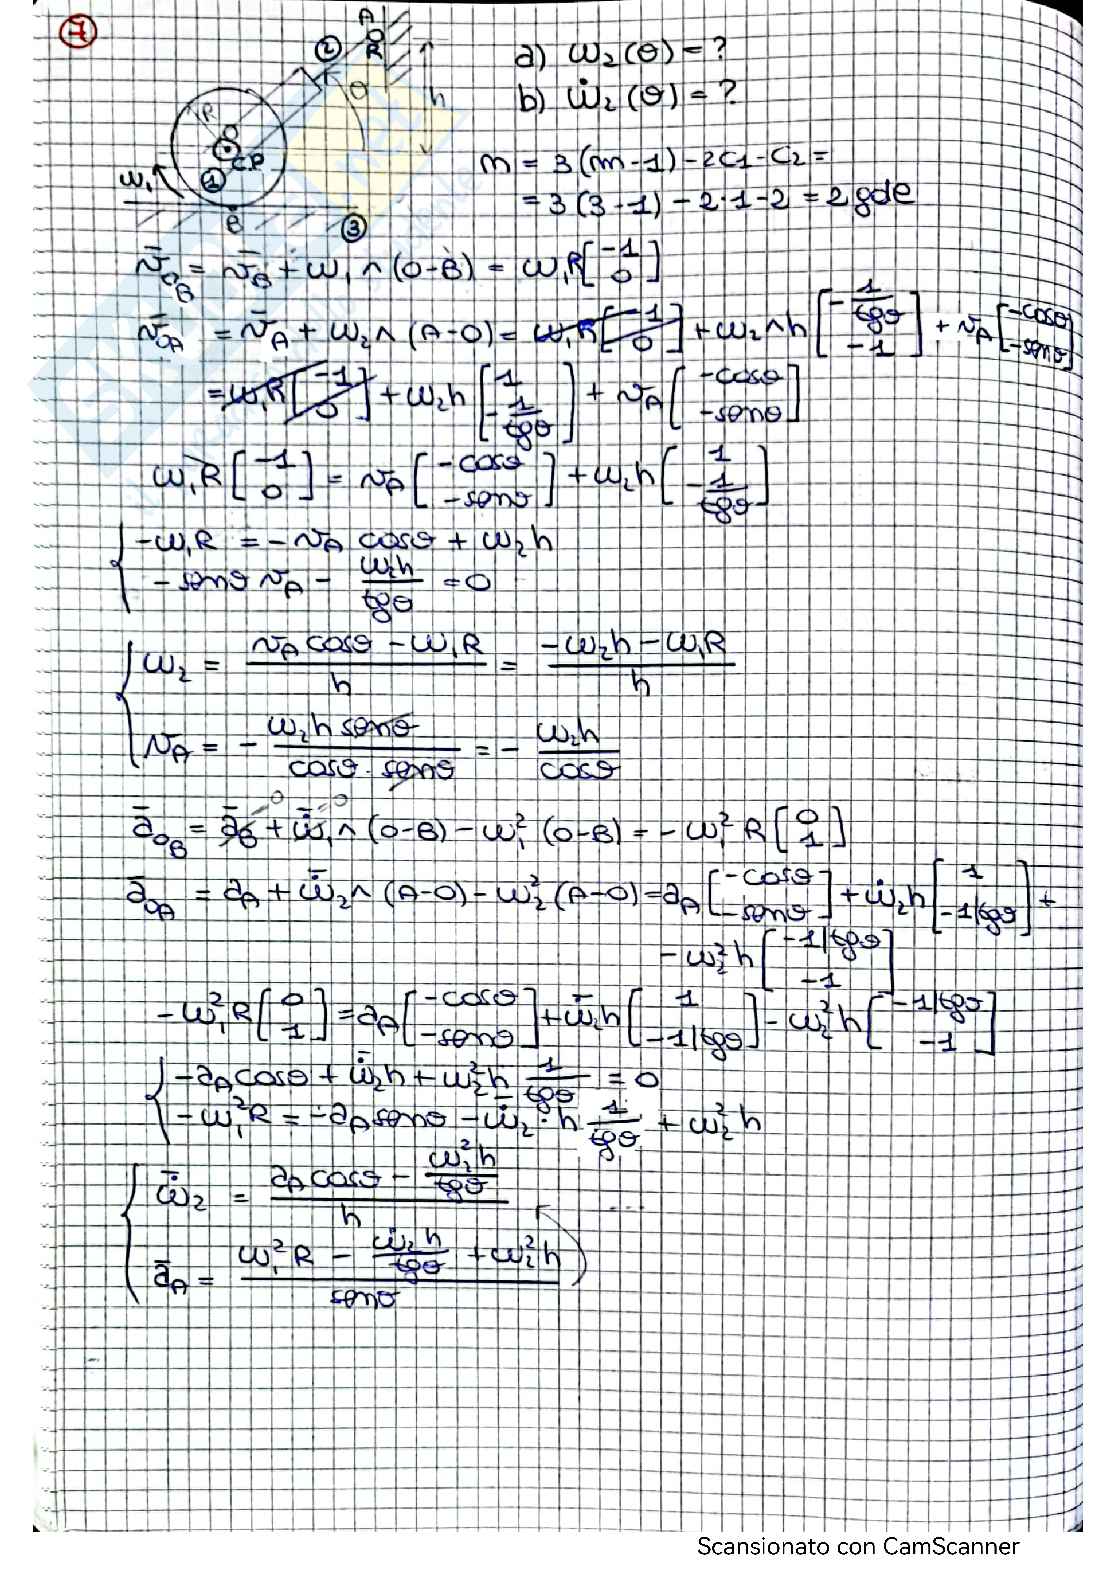 7
A
2
R
a) ω₂(θ) = ?
θ
h
b) ω̇₂(θ) = ?
R
O
C.P
m = 3(m-1) - 2C1 - C2 =
1
ω₁
= 3(3-1) - 2·1 - 2 = 2 gde
B
3
v̄_OB = v̄_B + ω₁ ∧ (O-B) = ω₁R [-1 0]
v̄_OA = v̄_A + ω₂ ∧ (A-O) = ω₁R [-1 0] + ω₂ ∧ h [-1/tgθ -1] + v_A [-cosθ -senθ]
= ω₁R [-1 0] + ω₂h [1 -1/tgθ] + v_A [-cosθ -senθ]
ω₁R [-1 0] = v_A [-cosθ -senθ] + ω₂h [1 -1/tgθ]
{ -ω₁R = -v_A cosθ + ω₂h
-senθ v_A - ω₂h/tgθ = 0
{ ω₂ = (v_A cosθ - ω₁R)/h = (-ω₂h - ω₁R)/h
v_A = - ω₂h senθ/(cosθ · senθ) = - ω₂h/cosθ
ā_OB = ā_B + ω̇₁ ∧ (O-B) - ω₁² (O-B) = - ω₁² R [0 1]
ā_OA = a_A + ω̇₂ ∧ (A-O) - ω₂² (A-O) = a_A [-cosθ -senθ] + ω̇₂h [1 -1/tgθ] +
- ω₂² h [-1/tgθ -1]
-ω₁²R [0 1] = a_A [-cosθ -senθ] + ω̇₂h [1 -1/tgθ] - ω₂²h [-1/tgθ -1]
{ -a_A cosθ + ω̇₂h + ω₂²h 1/tgθ = 0
-ω₁²R = -a_A senθ - ω̇₂ · h 1/tgθ + ω₂²h
{ ω̇₂ = (a_A cosθ - ω₂²h/tgθ)/h ...
ā_A = (ω₁²R - ω̇₂h/tgθ + ω₂²h)/senθ
Scansionato con CamScanner